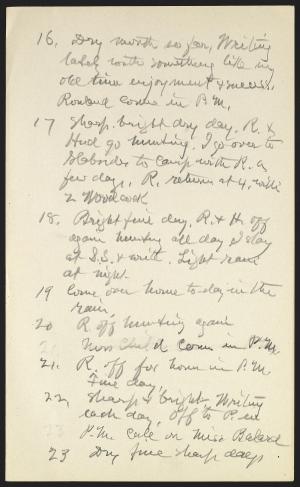 16, Dry month so far, Writing
lately with something like my
old time enjoyment & success,
Rowland comes in P.M.
17 Sharp, bright dry day. R. &
Hud go hunting. I go over to
to camp with R. a
few days, R. returns at 4, with
2 Woodcock
18. Bright fine day, R & H. off
again hunting all day I stay
at S.S. & write. Light rain
at night.
19 Come over home to-day in the
rain,
20 R. off hunting again.
21 Miss Child comes in P.M.
21. R. off for home in P.M.
Fine day,
22, Sharp & bright. Writing
each day, Off to P. in
23 P.M. call on Miss
23 Dry fine sharp days